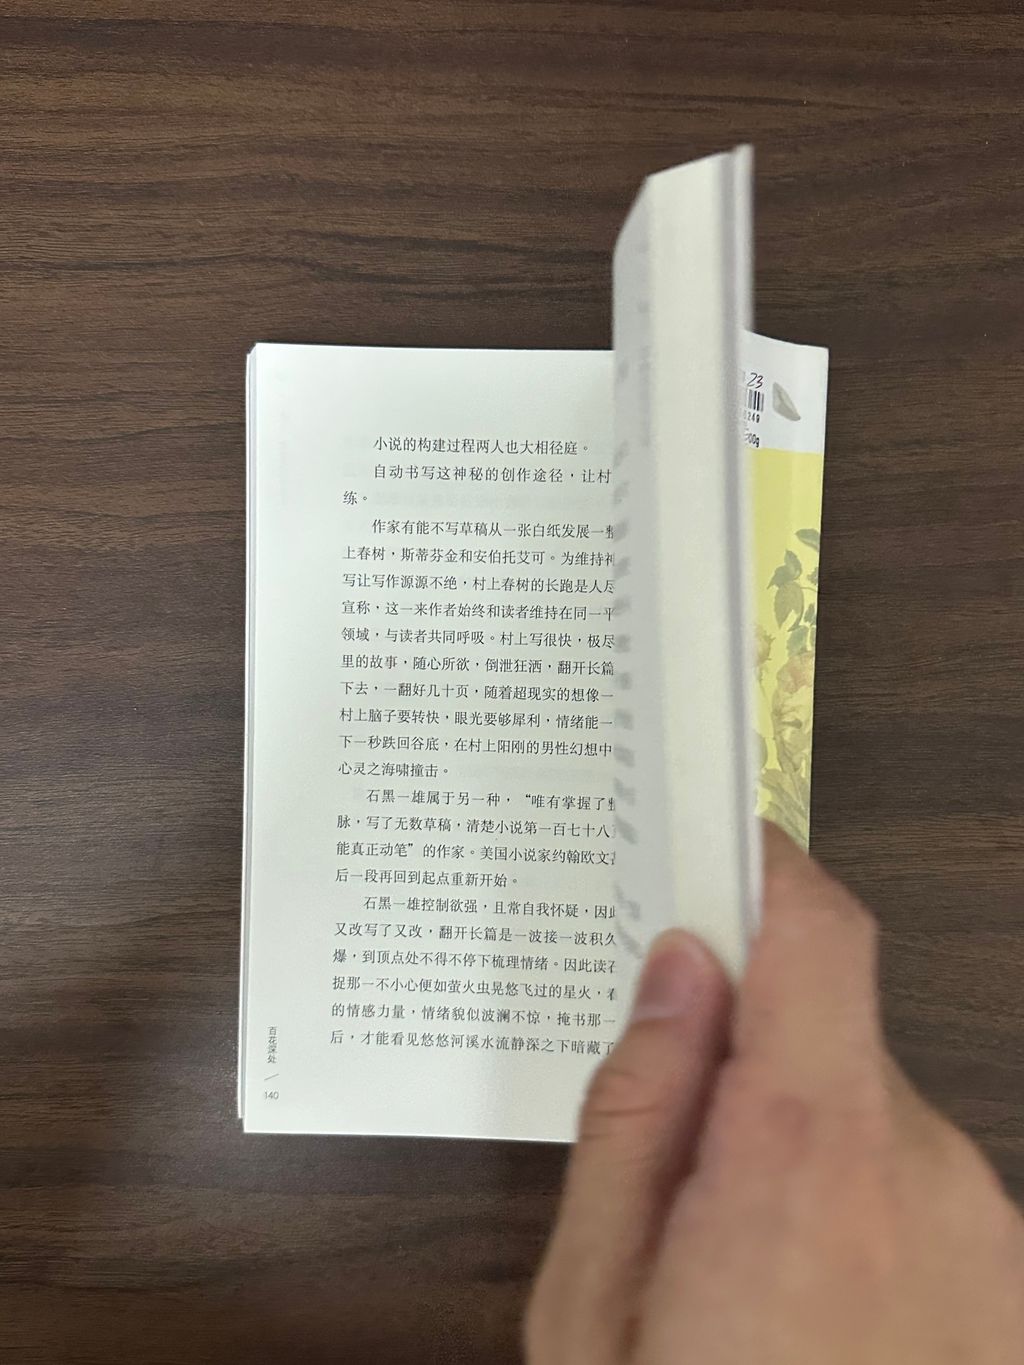 小说的构建过程两人也大相径庭。
自动书写这神秘的创作途径，让村
练。
作家有能不写草稿从一张白纸发展一整
上春树，斯蒂芬金和安伯托艾可。为维持神
写让写作源源不绝，村上春树的长跑是人尽
宣称，这一来作者始终和读者维持在同一平
领域，与读者共同呼吸。村上写很快，极尽
里的故事，随心所欲，倒泄狂洒，翻开长篇
下去，一翻好几十页，随着超现实的想像一
村上脑子要转快，眼光要够犀利，情绪能一
下一秒跌回谷底，在村上阳刚的男性幻想中
心灵之海啸撞击。
石黑一雄属于另一种，“唯有掌握了整
脉，写了无数草稿，清楚小说第一百七十八
能真正动笔”的作家。美国小说家约翰欧文
后一段再回到起点重新开始。
石黑一雄控制欲强，且常自我怀疑，因此
又改写了又改，翻开长篇是一波接一波积久
爆，到顶点处不得不停下梳理情绪。因此读石
捉那一不小心便如萤火虫晃悠飞过的星火，看
的情感力量，情绪貌似波澜不惊，掩书那一
后，才能看见悠悠河溪水流静深之下暗藏了
百花深处
140
23